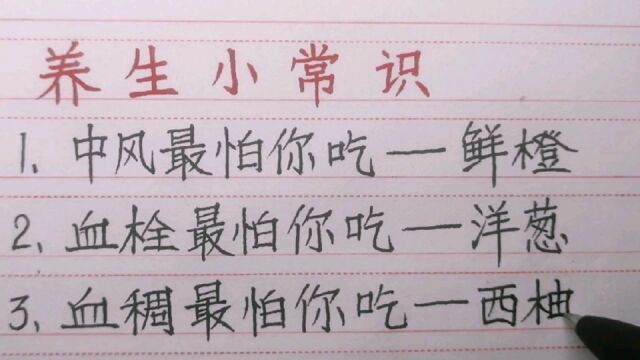 养生小常识
1、中风最怕你吃一鲜橙
2、血栓最怕你吃一洋葱
3、血稠最怕你吃一西柚